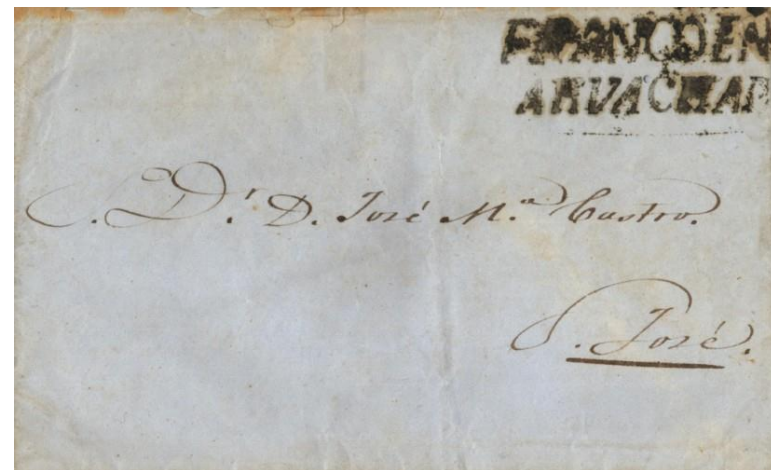 FRANCO EN
AHUACHAP
S. Dr. D. José Ma. Castro.
S. José.